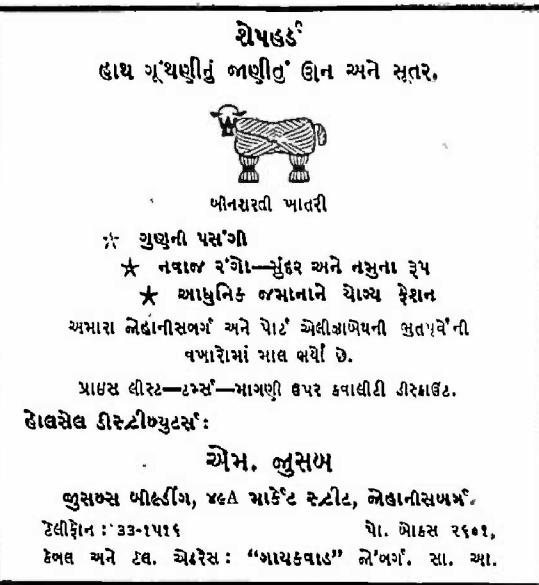 શેપહર્ડ
હાથ ગૂંથણીનું જાણીતું ઊન અને સૂતર.
બીનશરતી ખાતરી
☆ ગુણની પસંગી
★ નવાજ રંગો—સુંદર અને નમુના રૂપ
★ આધુનિક જમાનાને યોગ્ય ફેશન
અમારા જોહાનીસબર્ગ અને પોર્ટ એલીઝાબેથની ભુતપૂર્વની
વખારોમાં માલ ભર્યો છે.
પ્રાઇસ લીસ્ટ—ટર્મ્સ—માગણી ઉપર કવાલીટી ડીસ્કાઉંટ.
હોલસેલ ડીસ્ટ્રીબ્યુટર્સ:
એમ. જુસબ
જુસબ્સ બીલ્ડીંગ, ૪૯A માર્કેટ સ્ટ્રીટ, જોહાનીસબર્ગ.
ટેલીફોન: ૩૩-૧૫૧૬ પો. બોક્સ ૨૬૦૧,
કેબલ અને ટેલ. એડ્રેસ: “ગાયકવાડ” જો'બર્ગ. સા. આ.